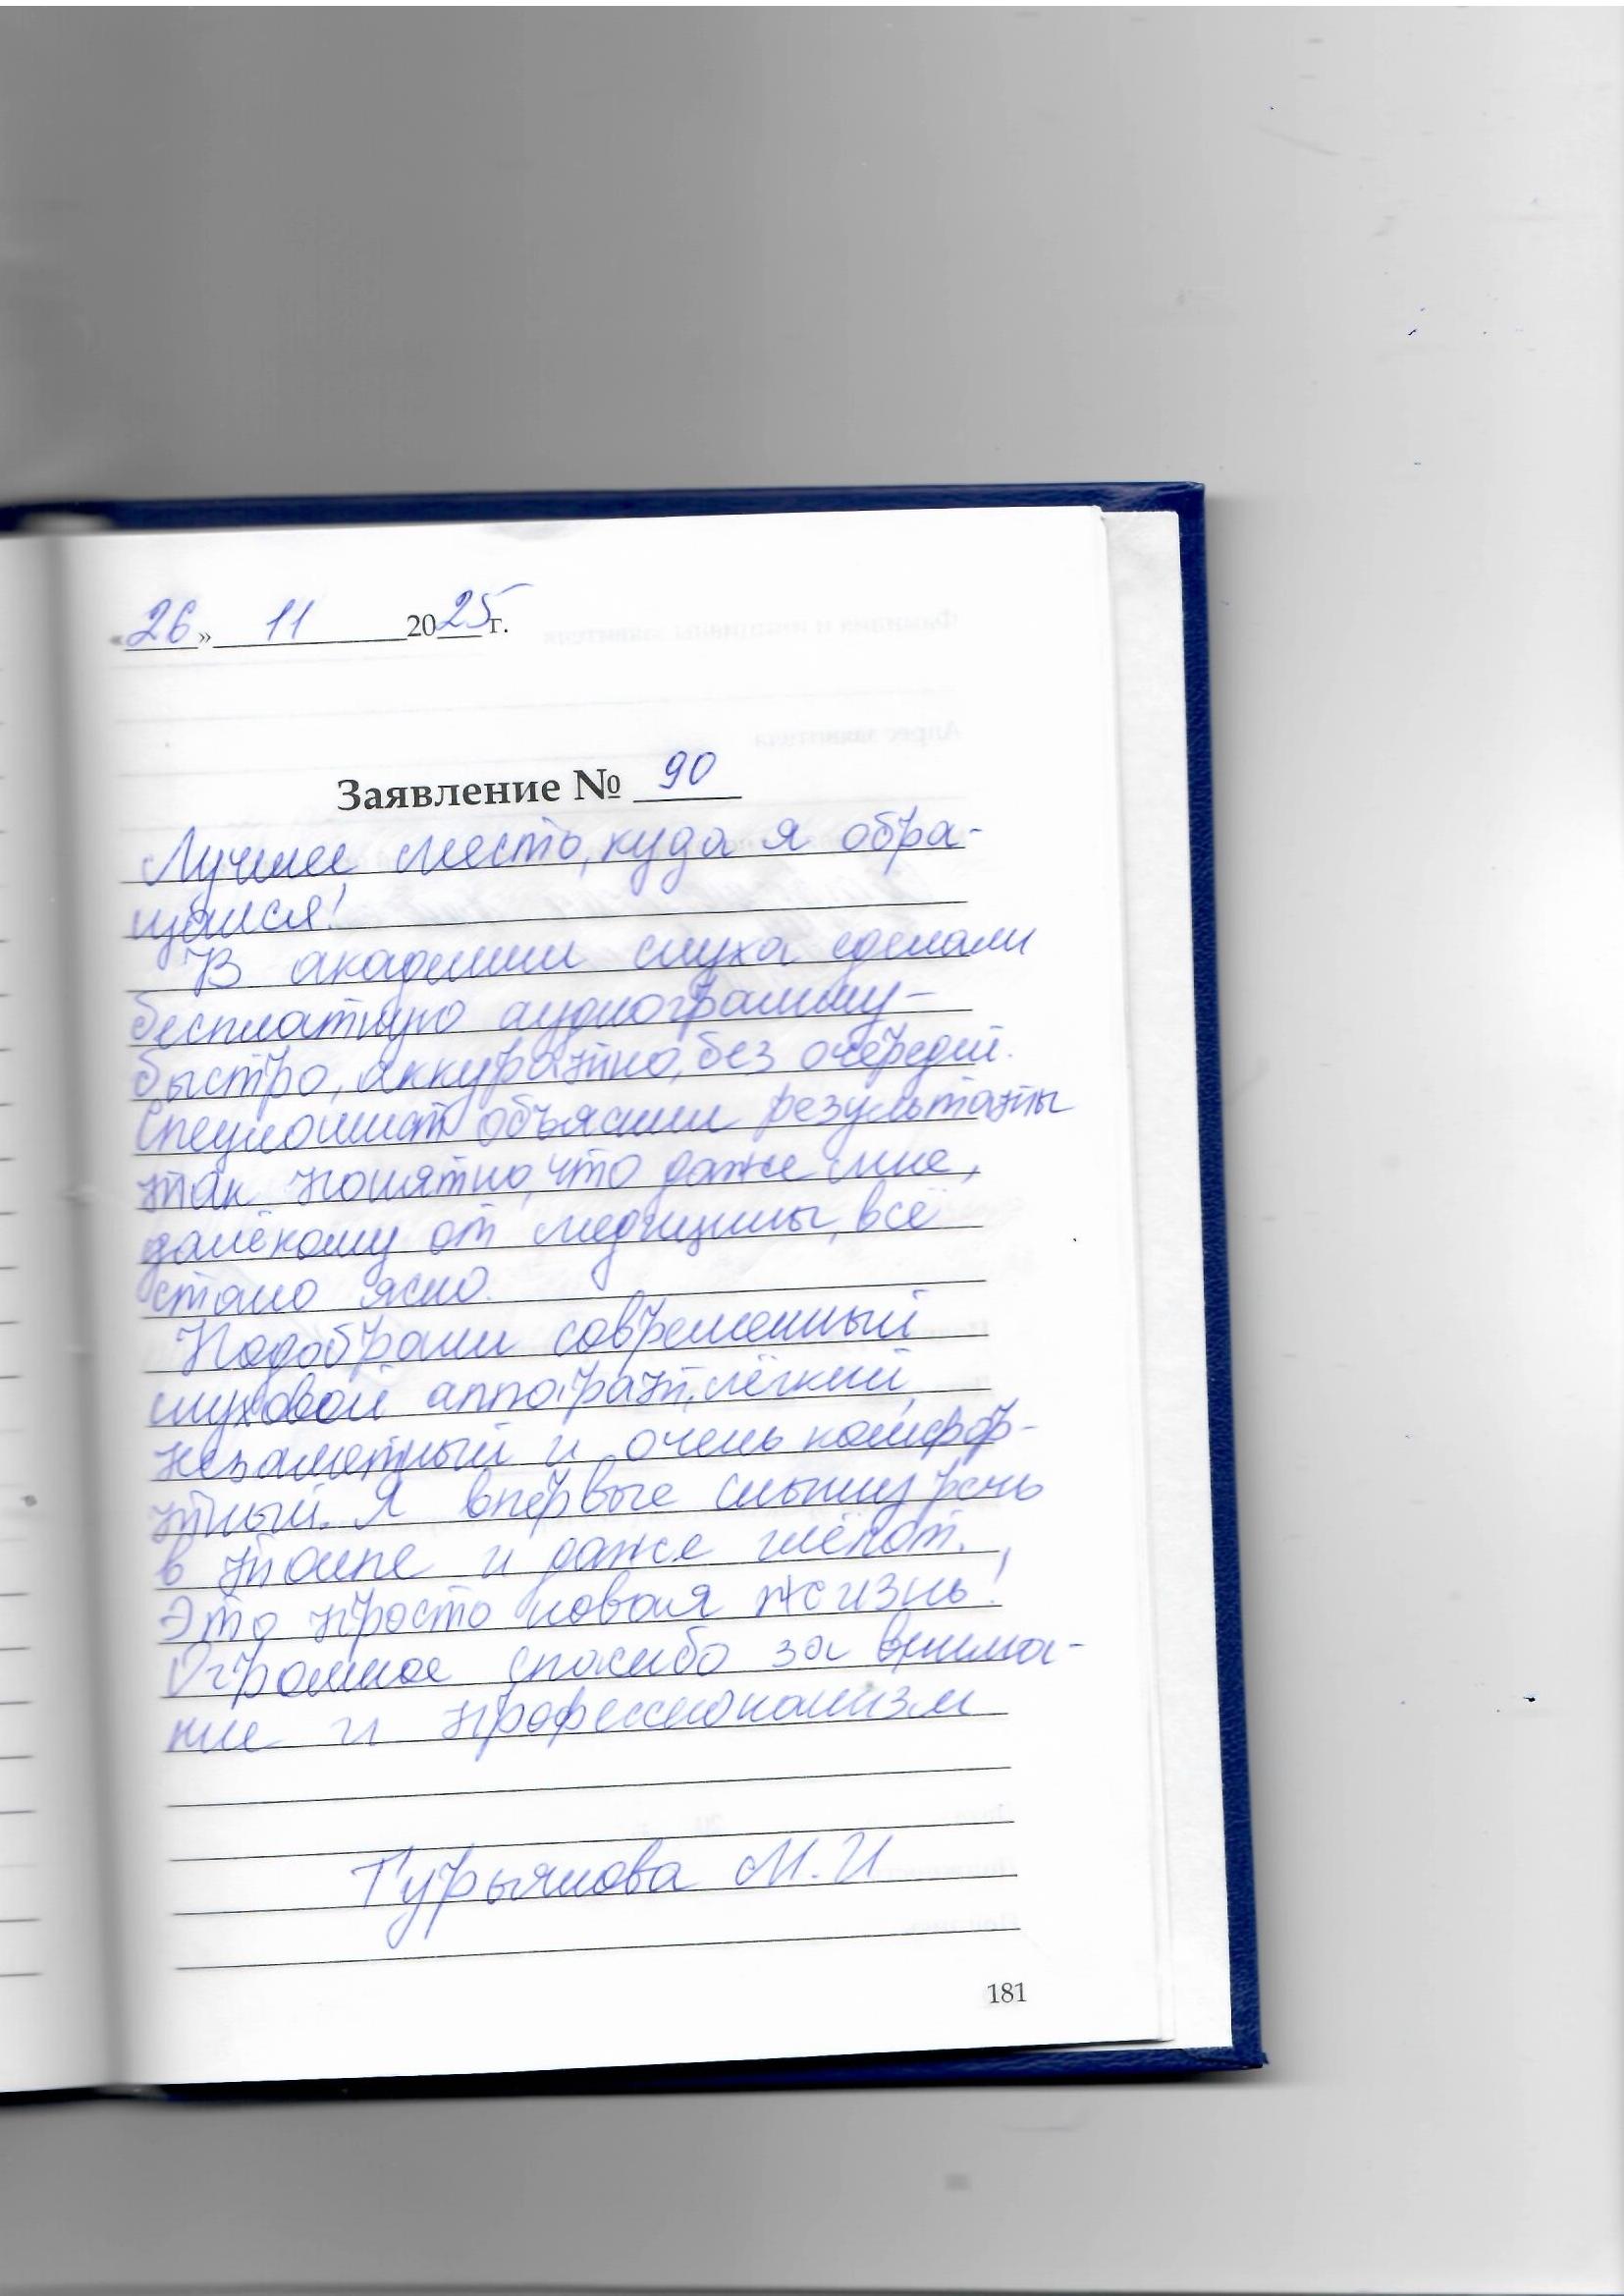 «26» 11 2025 г.
Заявление № 90
Лучшее место, куда я обра-
щался!
В академии слуха сделали
бесплатную аудиограмму –
быстро, аккуратно, без очередей.
Специалист объяснил результаты
так понятно, что даже мне,
далёкому от медицины, всё
стало ясно.
Подобрали современный
слуховой аппарат, лёгкий,
незаметный и очень комфор-
тный. Я впервые слышу речь
в толпе и даже шёпот.
Это просто новая жизнь!
Огромное спасибо за внима-
ние и профессионализм
Гурьянова М.И
181